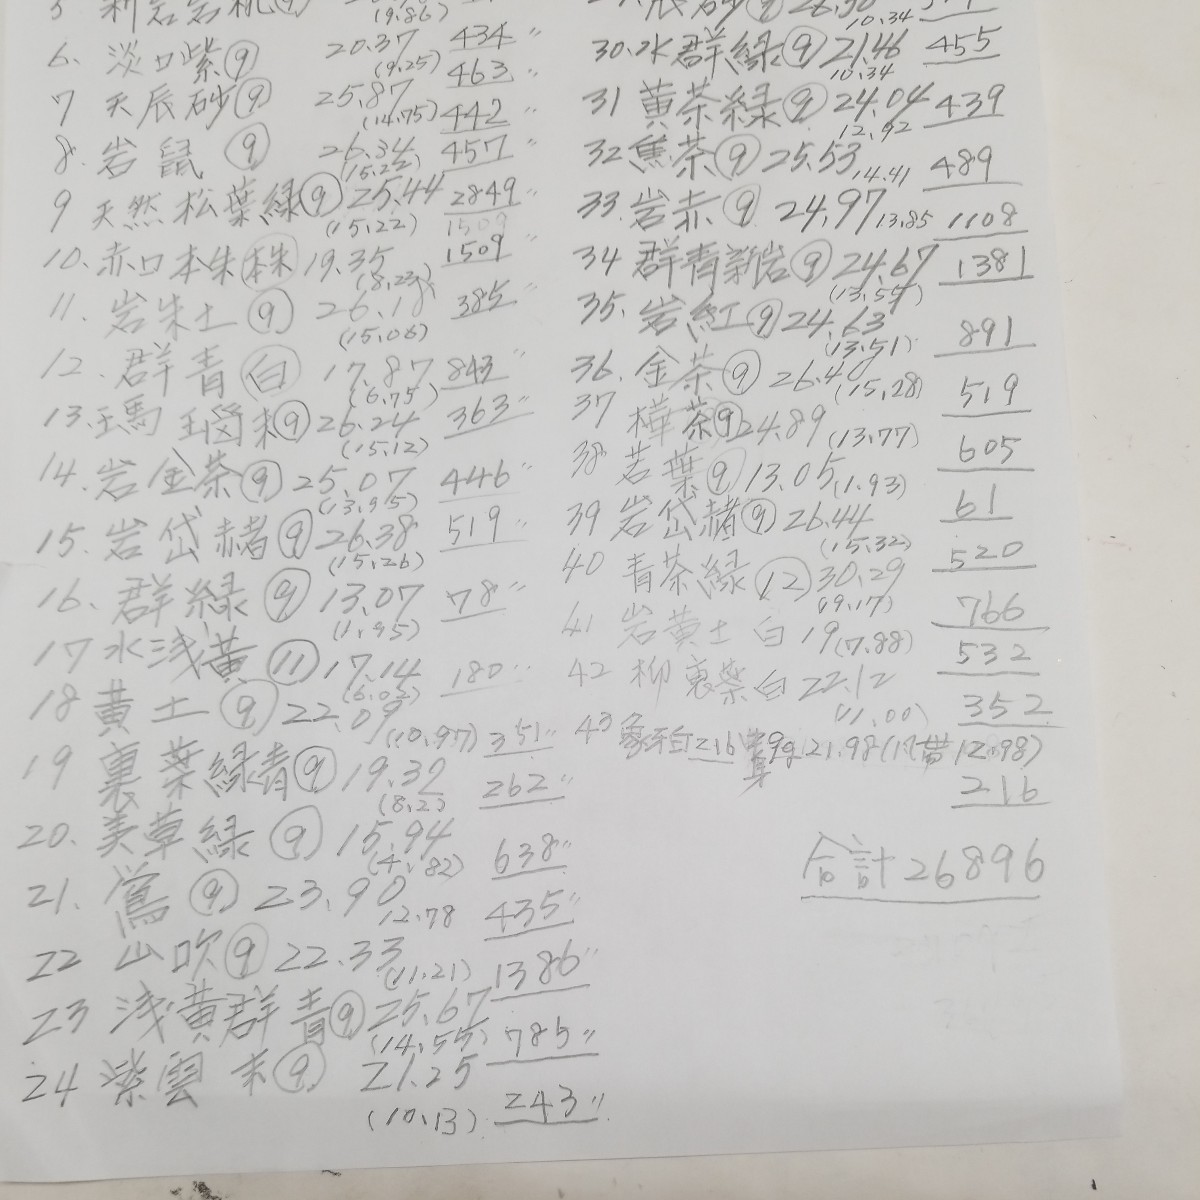 5 新岩岩桃⑨
(9.86)
6. 淡口紫⑨ 20.37 434〃
(9.25)
7 天辰砂⑨ 25.87 463〃
(14.75)
8. 岩鼠⑨ 26.34 442〃
(15.22)
9 天然松葉緑⑨ 25.44 457〃
(15.22) 2849〃
1509
10. 赤口本朱(本株) 19.35 1509〃
(8.23)
11. 岩朱土⑨ 26.18 385〃
(15.06)
12. 群青(白) 17.87 843〃
(6.75)
13. 瑪瑙末⑨ 26.24 363〃
(15.12)
14. 岩金茶⑨ 25.07 446〃
(13.95)
15. 岩岱赭⑨ 26.38 519〃
(15.26)
16. 群緑⑨ 13.07 78〃
(1.95)
17 水浅黄⑪ 17.14 180〃
(6.02)
18 黄土⑨ 22.09
(10.97) 351〃
19 裏葉緑青⑨ 19.32
(8.2) 262〃
20. 美草緑⑨ 15.94
(4.82) 638〃
21. 鶯⑨ 23.90
12.78 435〃
22 山吹⑨ 22.33
(11.21) 1386〃
23 浅黄群青⑨ 25.67
(14.55) 785〃
24 紫雲末⑨ 21.25
(10.13) 243〃
辰砂⑨
10.34
30. 水群緑⑨ 21.46 455
10.34
31 黄茶緑⑨ 24.04 439
12.92
32 焦茶⑨ 25.53 489
14.41
33. 岩赤⑨ 24.97 13.85 1108
34 群青新岩⑨ 24.67 1381
(13.55)
35. 岩紅⑨ 24.63 891
(13.51)
36. 金茶⑨ 26.40 519
(15.28)
37 樺茶⑨ 24.89 (13.77) 605
38 若葉⑨ 13.05 (1.93) 61
39 岩岱赭⑨ 26.44 520
(15.32)
40 青茶緑⑫ 30.29 766
(19.17)
41 岩黄土 白 19 (7.88) 532
42 柳裏葉白 22.12 352
(11.00)
43 象牙白 216 9g 21.98 (12.98)
216
合計 26896